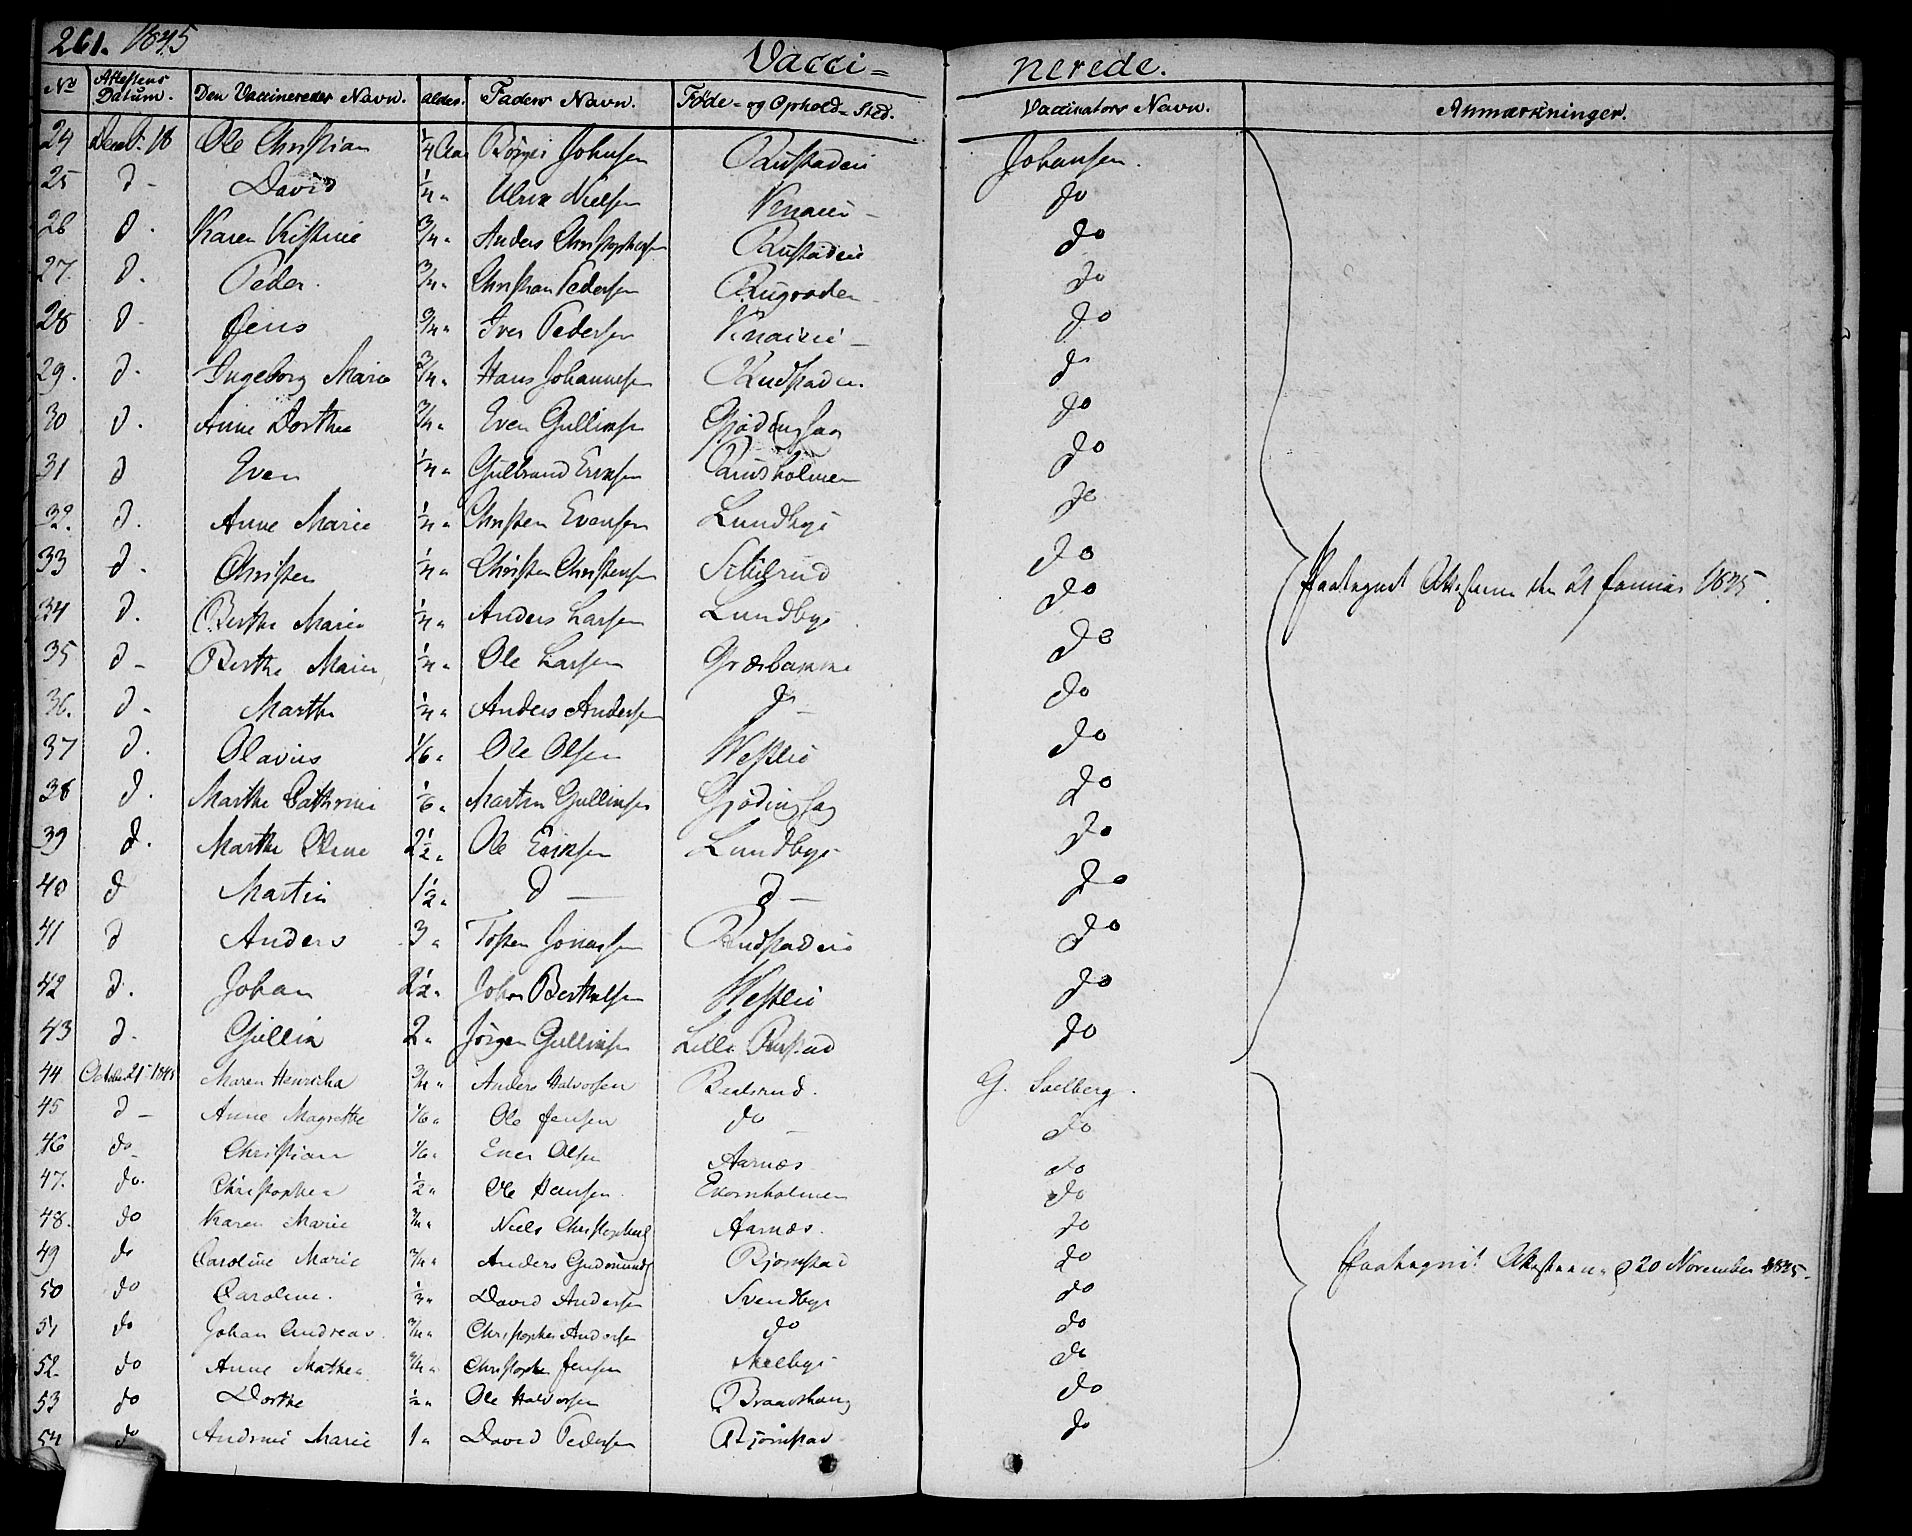 261. 1845
Vacci= nerede.
No Attestens Datum. Den Vaccineredes Navn. Alder. Faders Navn. Føde- og Ophold-Sted. Vaccinatørs Navn. Anmærkninger.
24 Decbr. 18 Ole Christian 1/4 Aar Børger Johnsen Johansen.
25 d - David 1/4 " Ulrik Nielsen do
26 d. Karen Kistine 3/4 " Anders Christophersen do
27. d. Peder. 3/4 " Christian Pedersen do
28 d- Jens 3/4 " Iver Pedersen do
29. d. Ingeborg Marie 3/4 " Hans Johannesen do
30 d. Anne Dorthea 3/4 " Even Gulliksen Gjødingsag do
31 d Even 1/4 " Gulbrand Eriksen do
32. d. Anne Marie 1/4 " Christen Evensen Lundbye do
33 d. Christen 1/4 " Christen Christensen do
34 d. Berthe Marie 1/4 " Anders Larsen Lundbye do
35 d - Berthe Marie 1/4 " Ole Larsen do
36. d - Marthe 1/4 " Anders Andersen do - do
37 d. Olavus 1/6 " Ole Olsen Westlie do
38 d. Marthe Cathrine 1/6 " Martin Gulliksen Gjødingsag do
39 d. Marthe Oline 2 1/2 " Ole Eriksen Lundbye do
40 d Martin 1 1/2 " d - d - do
41 d Anders 3 " Tosten Jonassen do
42 d. Johan 2 1/2 " Johan Berthelsen Westlie do
43 d. Gullik 2 " Jørgen Gulliksen Lille Rustad do
Modtaget Attesten den 21 Januar 1845.
44 October 21 1845 Maren Henrikka 3/4 " Anders Halvorsen G. Soelberg.
45 d - Anne Magrethe 1/6 " Ole Jensen do - do
46 do - Christian 1/6 " Even Olsen Aarnæs do
47. do. Christopher 1/2 " Ole Hansen Ekornholmen do
48. do Karen Marie 3/4 " Niels Christophers. Aarnæs. do
49 do Caroline Marie 3/4 " Anders Gudmunds. Bjørnstad do
50 do Caroline. 1/3 " David Andersen Svendbye do
51 do Johan Andreas. 3/4 " Christopher Andersen do do
52. do Anne Mathea 3/4 " Christopher Jensen Melbye do
53 do Dorthe 1/2 " Ole Halvorsen Braatshaug do
54 do Andrine Marie 1 " David Pedersen Bjørnstad do
Modtaget Attesten d 20 November 1845.